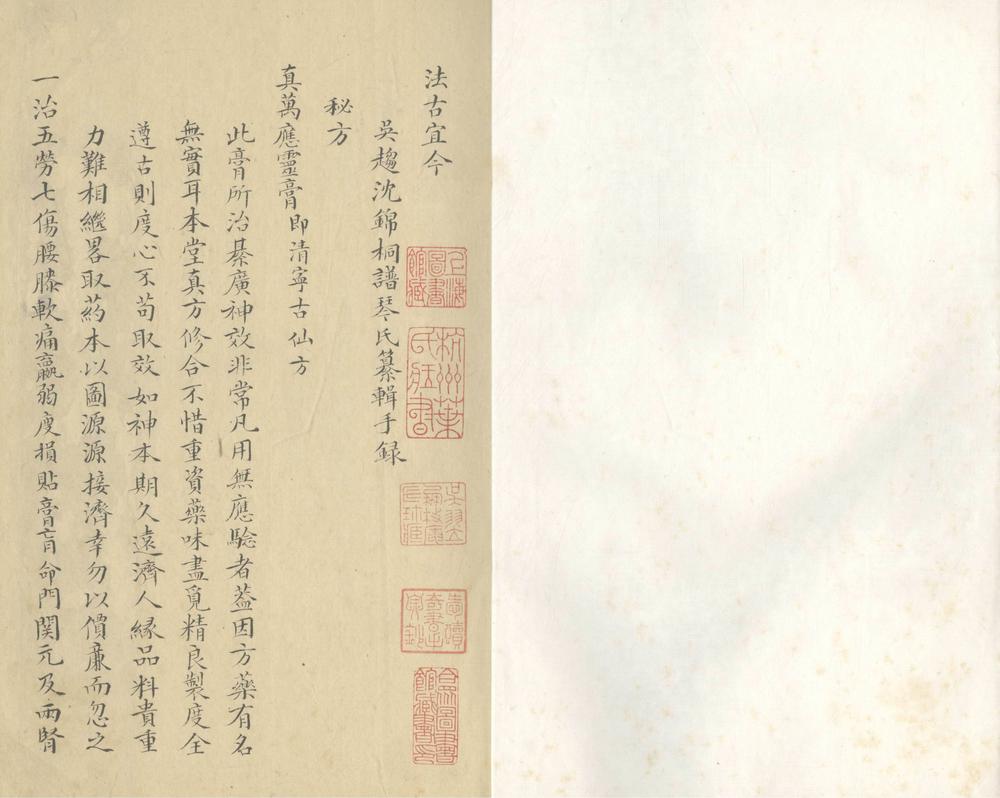 法古宜今
吳趨沈錦桐譜琴氏纂輯手録
秘方
真萬應靈膏即清寧古仙方
此膏所治綦廣神效非常凡用無應驗者葢因方藥有名
無實耳本堂真方修合不惜重資藥味盡覓精良製度全
遵古則度心不苟取效如神本期久遠濟人緣品料貴重
力難相繼畧取葯本以圖源源接濟幸勿以價廉而忽之
一治五勞七傷腰膝軟痛羸弱虛損貼膏肓命門関元及兩腎
上海圖書館藏
杭州葉氏藏書
合眾圖書館藏書印